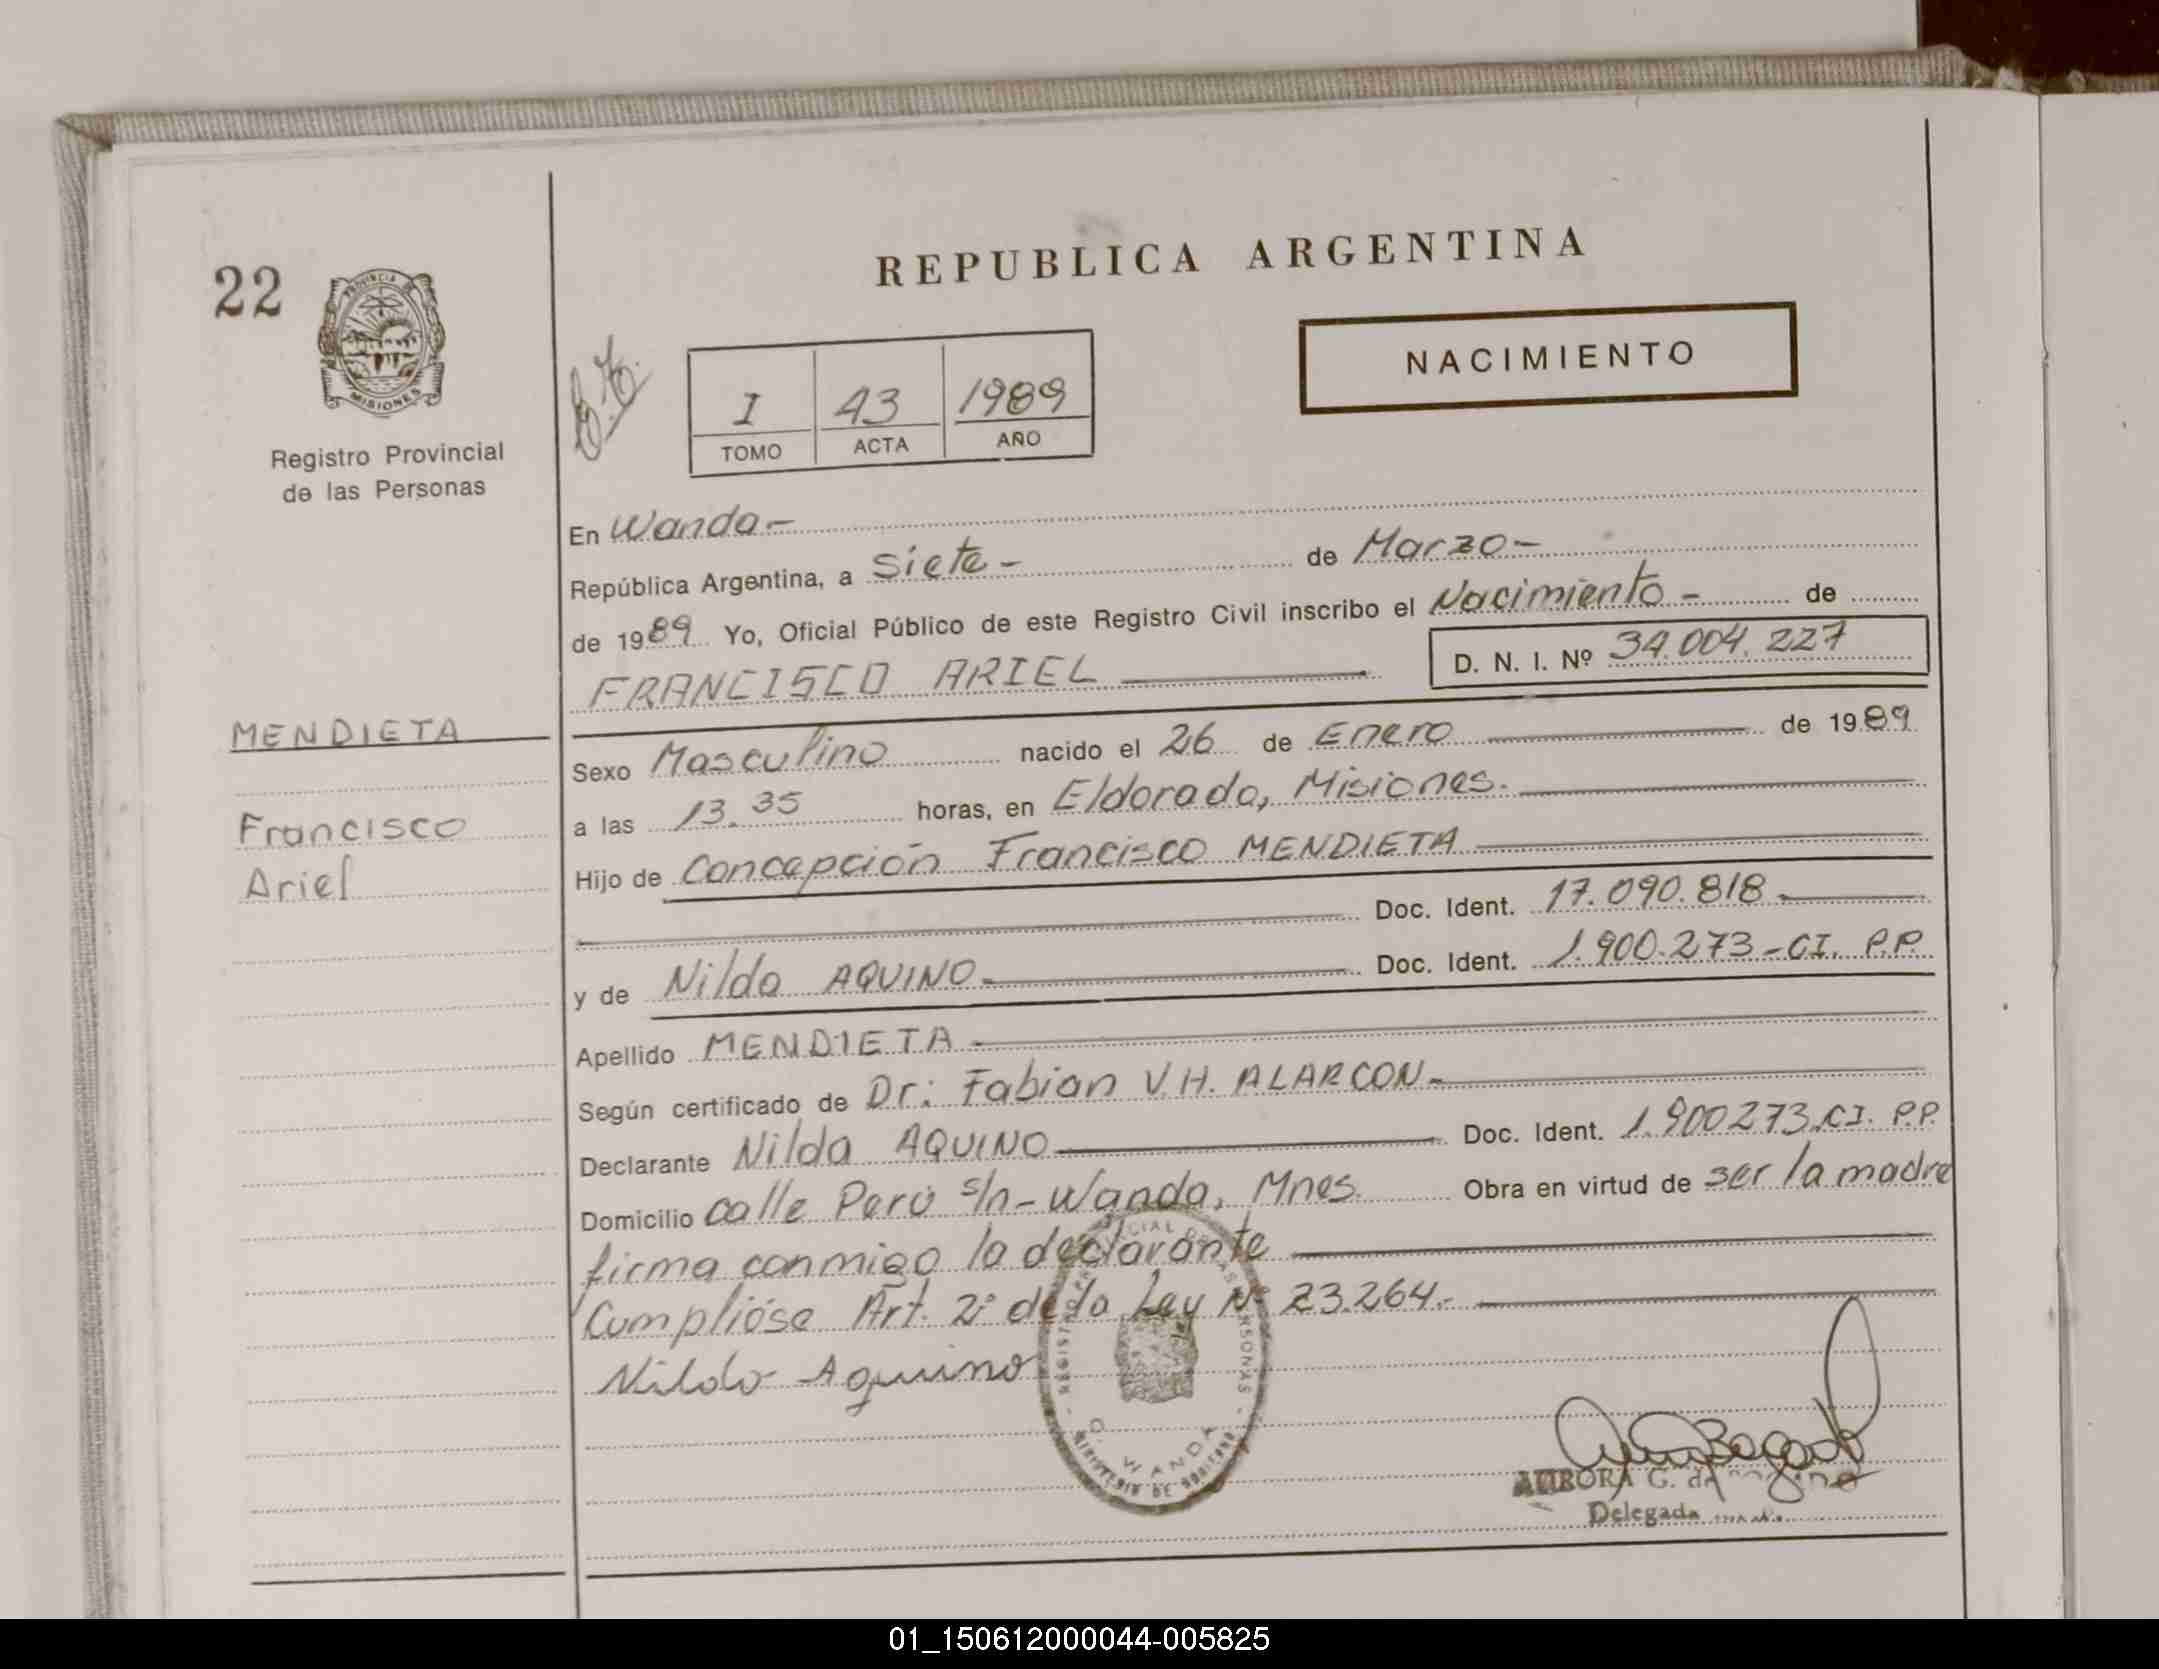 REPUBLICA ARGENTINA
22
PROVINCIA DE
MISIONES
Registro Provincial
de las Personas
NACIMIENTO
I 43 1989
TOMO ACTA AÑO
En Wanda-
República Argentina, a Siete- de Marzo-
de 1989 Yo, Oficial Público de este Registro Civil inscribo el Nacimiento - de
FRANCISCO ARIEL D. N. I. Nº 34.004.227
MENDIETA
Francisco
Ariel
Sexo Masculino nacido el 26 de Enero de 1989
a las 13.35 horas, en Eldorado, Misiones.
Hijo de Concepción Francisco MENDIETA
Doc. Ident. 17.090.818
y de Nilda AQUINO Doc. Ident. 1.900.273-CI. P.P.
Apellido MENDIETA
Según certificado de Dr: Fabian V.H. ALARCON-
Declarante Nilda AQUINO Doc. Ident. 1.900273.CI. P.P.
Domicilio calle Perú s/n-Wanda, Mnes. Obra en virtud de ser la madre
firma conmigo la declarante
Cumplióse Art. 2º de la Ley Nº 23.264.-
Nilda Aquino
WANDA
MINISTERIO DE GOBIERNO
AURORA G. de
Delegada
01_150612000044-005825